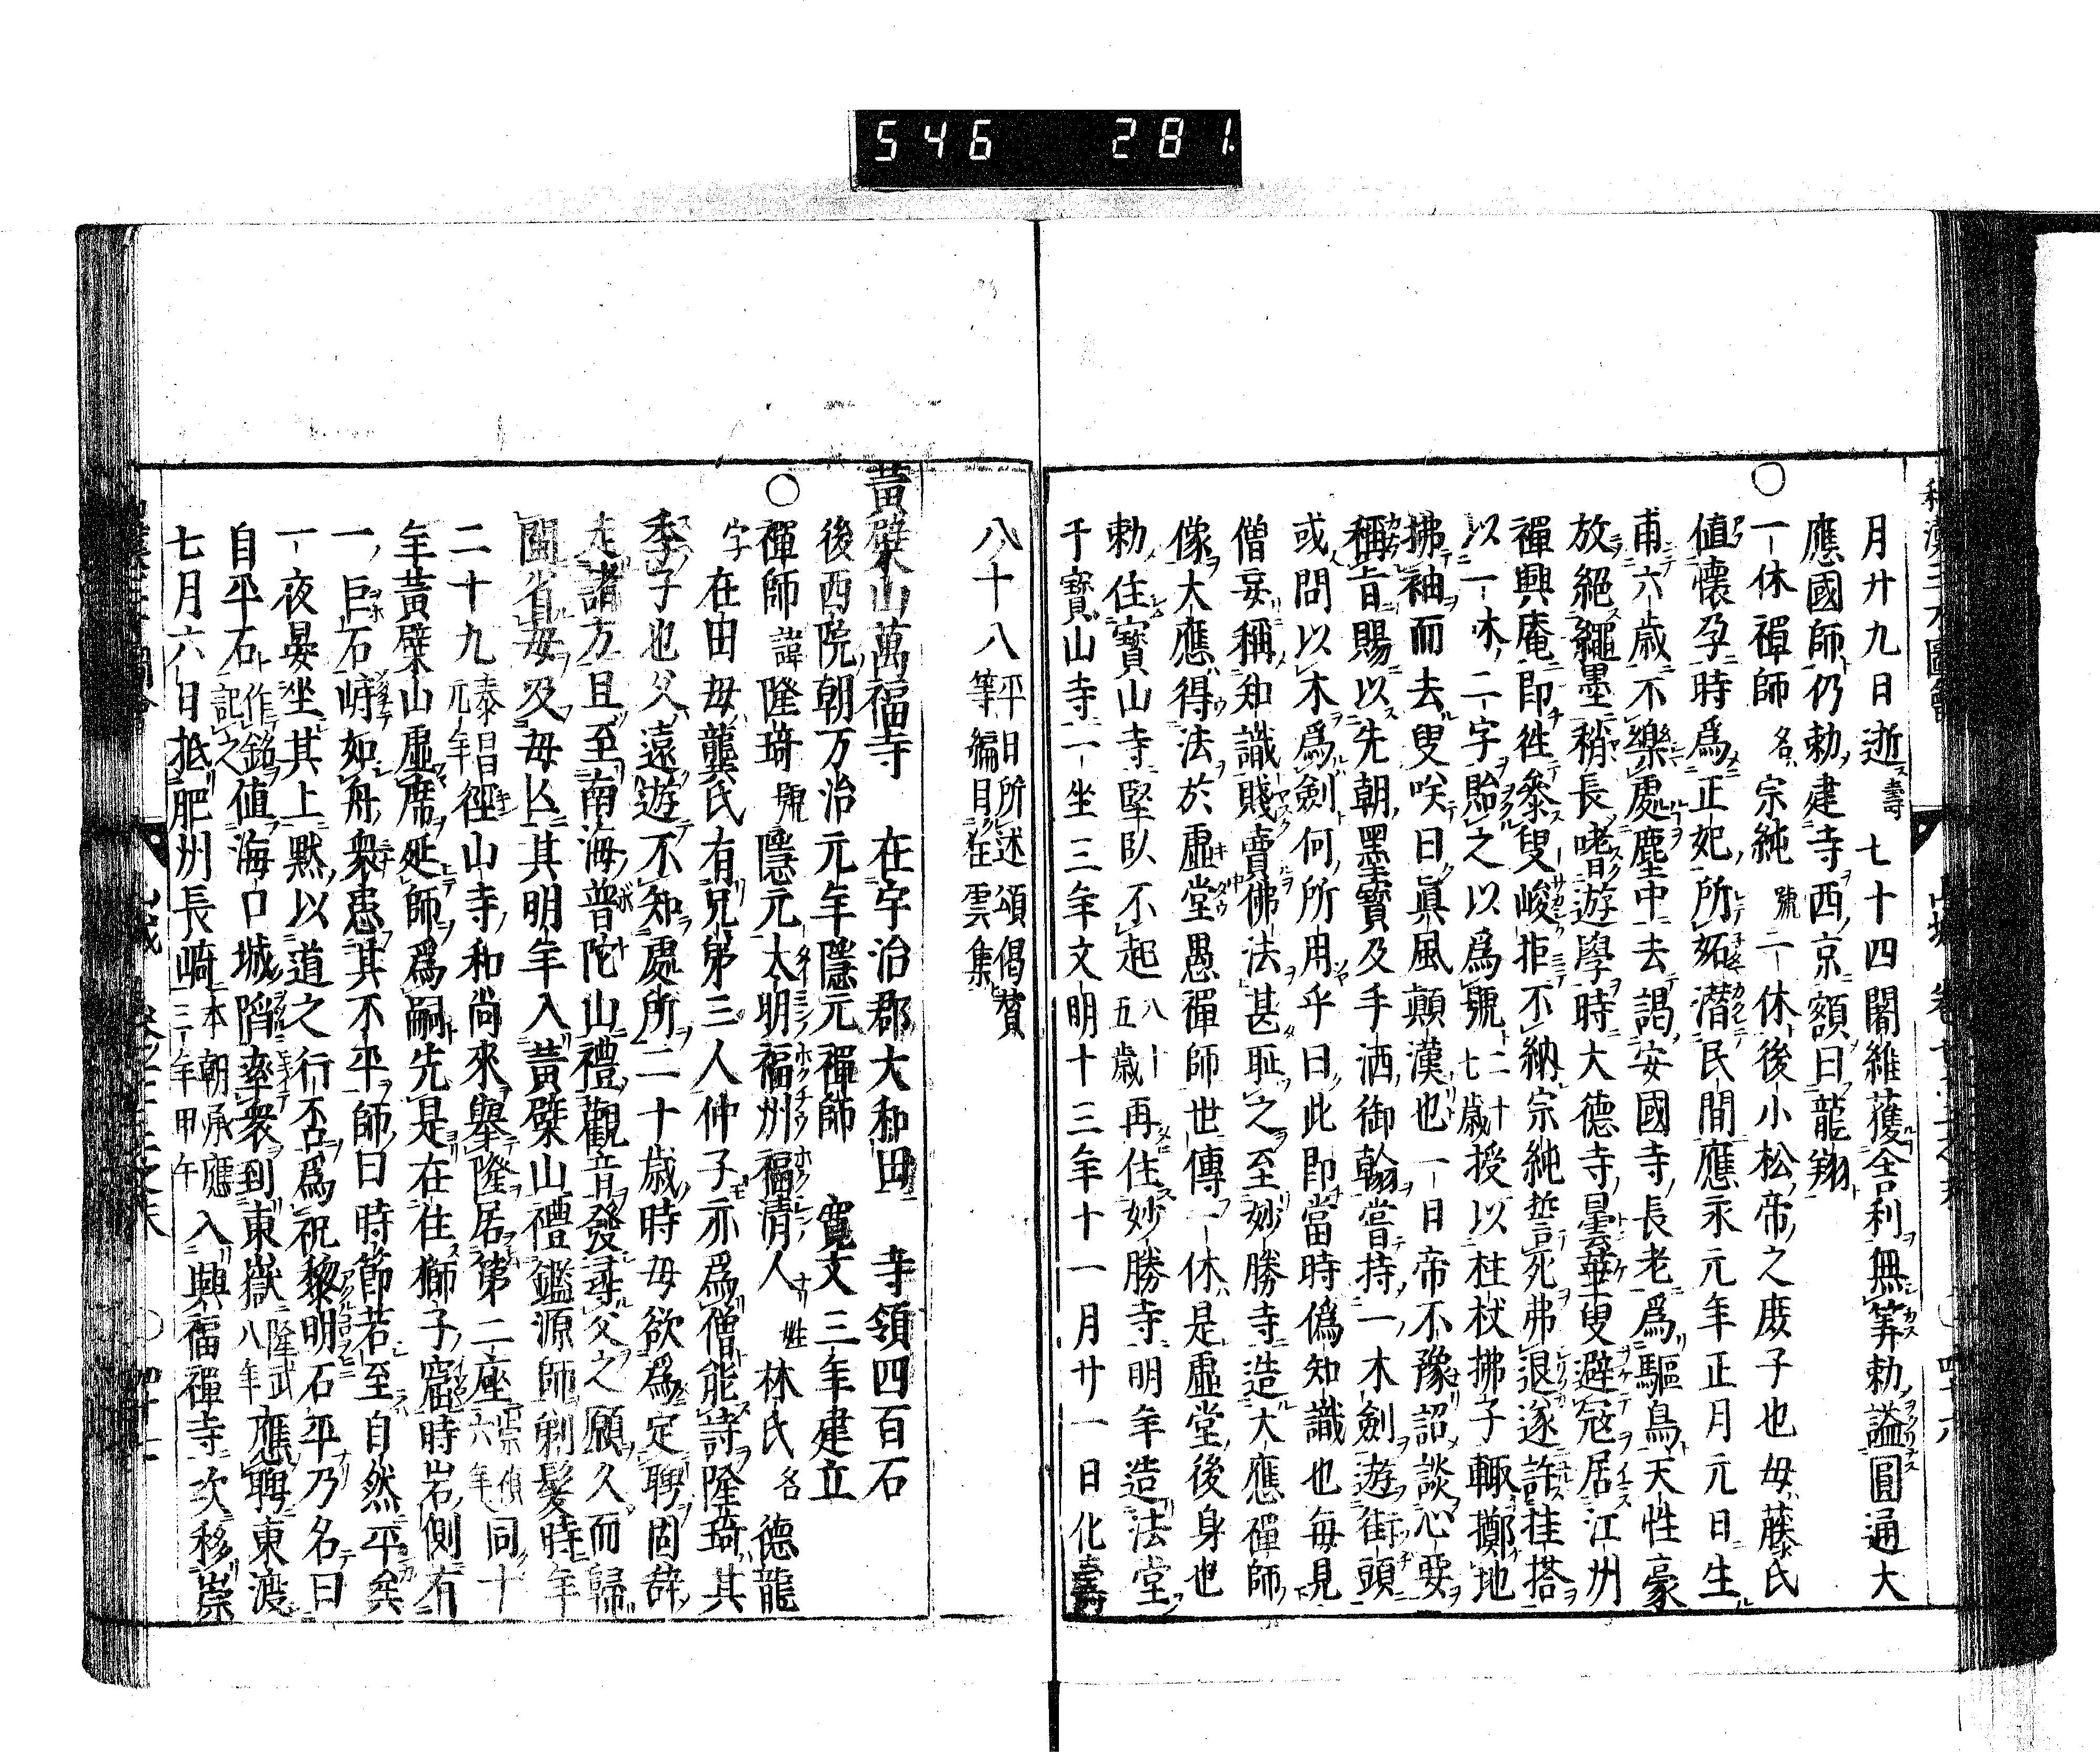 546 281.
月廿九日逝壽七十四闍維獲舍利無筭勅謚圓通大
應國師仍勅建寺西京額曰龍翔
○一休禪師名宗純號一休後小松帝之庻子也母藤氏
値懷孕時爲正妃所妬潛民間應永元年正月元日生
甫六歲不樂處塵中去謁安國寺長老爲驅烏天性豪
放絕繩墨稍長嗜遊學時大德寺曇華叟避冦居江州
禪興庵即徃參叟峻拒不納宗純誓死弗退遂許挂搭
以一休二字貽之以爲號二十七歲授以柱杖拂子輙擲地
拂袖而去叟咲曰眞風顛漢也一日帝不豫詔談心要
稱旨賜以先朝墨寶及手洒御翰甞持一木劍遊街頭
或問以木爲劍何所用乎曰此即當時偽知識也每見
僧妄稱知識賤賣佛法甚耻之至妙勝寺造大應禪師
像大應得法於虛堂愚禪師世傳一休是虛堂後身也
勅住寶山寺堅臥不起八十五歲再住妙勝寺明年造法堂
于寶山寺一坐三年文明十三年十一月廿一日化壽
八十八平日所述頌偈賛等編目狂雲集
黃檗山萬福寺 在宇治郡大和田 寺領四百石
後西院朝万治元年隱元禪師 寬文三年建立
○禪師諱隆琦號隱元大明福州福清人姓林氏名德龍
字在田母龔氏有兄弟三人仲子亦爲僧能詩隆琦其
季子也父遠遊不知處所二十歲時母欲爲定聘固辞
走諸方且至南海普陀山禮觀音發尋父之願久而歸
閩省母及母亾其明年入黃檗山禮鑑源師剃髮時年
二十九泰昌元年徑山寺和尚來舉隆居第二座崇禎六年同十
年黃檗山虛席延師爲嗣先是在住獅子窟時岩側有
一巨石峙如舟衆患其不平師曰時節若至自然平矣
一夜晏坐其上默以道之行否爲祝黎明石平乃名曰
自平石作銘記之値海口城陷率衆到東嶽隆武八年應聘東渡
七月六日抵肥州長崎本朝承應三年甲午入興福禪寺次移崇